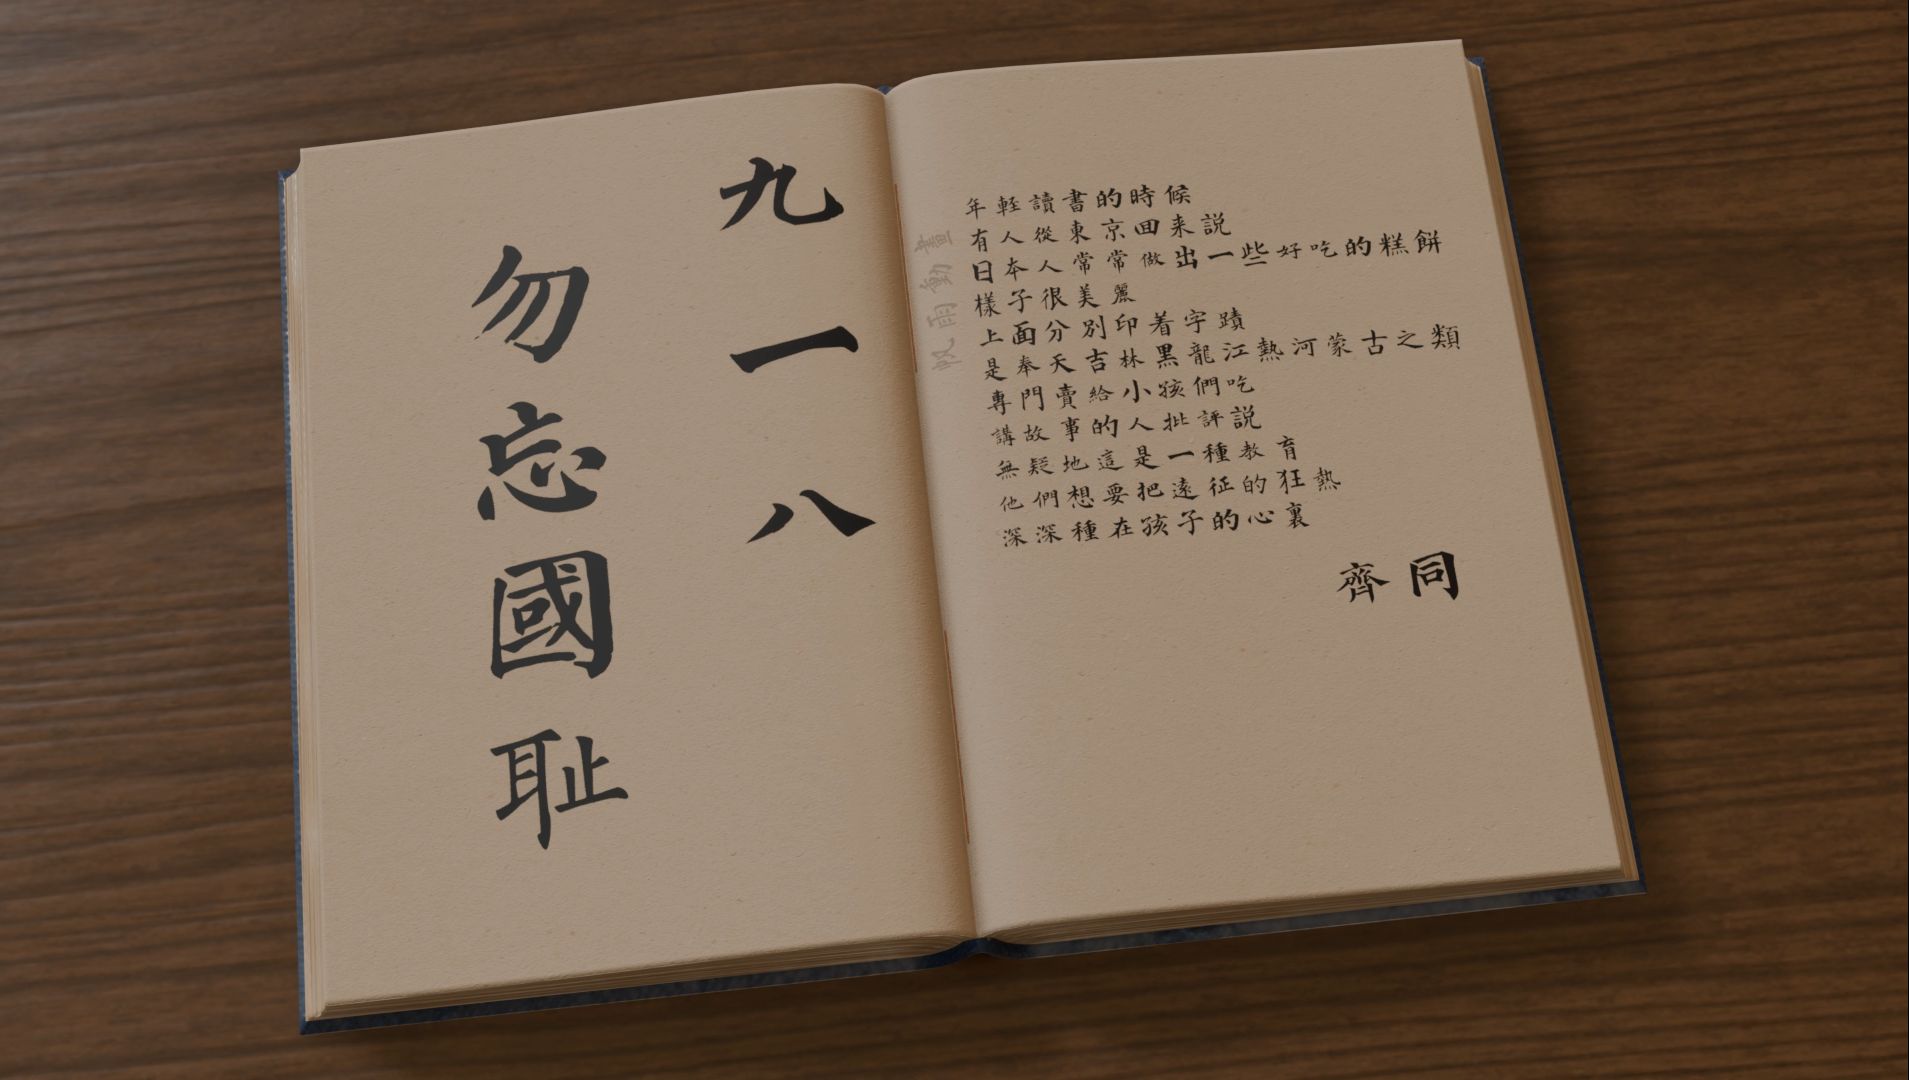 九一八
勿忘國耻
年輕讀書的時候
有人從東京回来説
日本人常常做出一些好吃的糕餅
樣子很美麗
上面分別印着字蹟
是奉天吉林黑龍江熱河蒙古之類
專門賣給小孩們吃
講故事的人批評説
無疑地這是一種教育
他們想要把遠征的狂熱
深深種在孩子的心裏
齊同